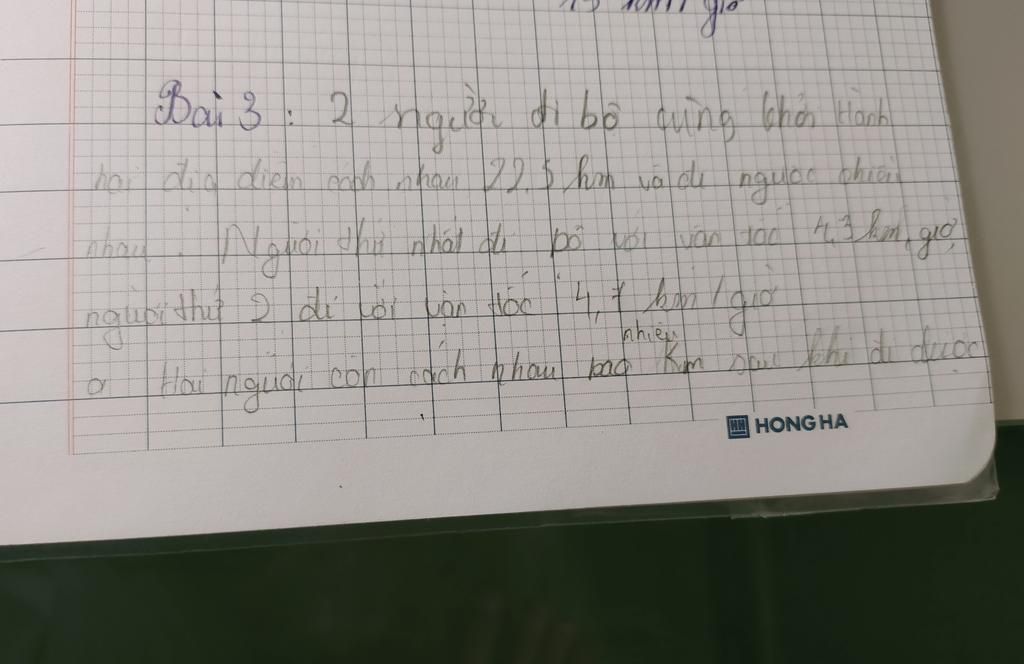 13 km/ giờ
Bài 3 : 2 người đi bộ cùng khởi hành
hai địa điểm cách nhau 22.5 km và đi ngược chiều
nhau. Người thứ nhất đi bộ với vận tốc 4,3 km/giờ,
người thứ 2 đi với vận tốc 4,7 km/giờ
nhiêu
a Hai người còn cách nhau bao km sau khi đi được
HONG HA